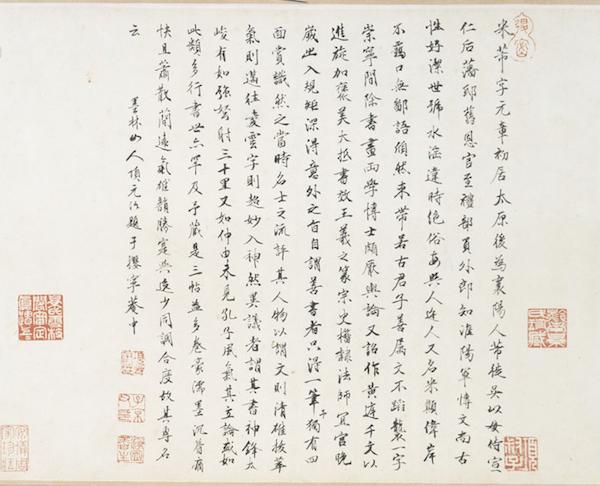 米芾字元章初居太原後為襄陽人芾徙吳以母侍宣
仁后藩邸舊恩官至禮部員外郎知淮陽軍博文尚古
性好潔世號水淫違時絕俗每與人迕人又名米顛偉岸
不羈口無鄙語頎然束帶若古君子善属文不蹈襲一字
崇寧間除書畫兩學博士頗厭輿論又詔作黃庭千文以
進旋加褒美大抵書效王羲之篆宗史籀隸法師宜官晚
歲出入規矩深得意外之旨自謂善書者只得一筆予獨有四
面賞識然之當時名士之流評其人物以謂文則清雄拔萃
氣則邁往凌雲字則超妙入神然異議者謂其書神鋒太
峻有如強弩射三十里又如仲由未見孔子風氣其立論或如
此類多行書世亦罕及予藏是三帖並多卷豪濡墨沉著痛
快且蕭散簡遠氣雄韻勝寔與逸少同調合度故其專名
云 墨林山人項元汴題于攖寧菴中